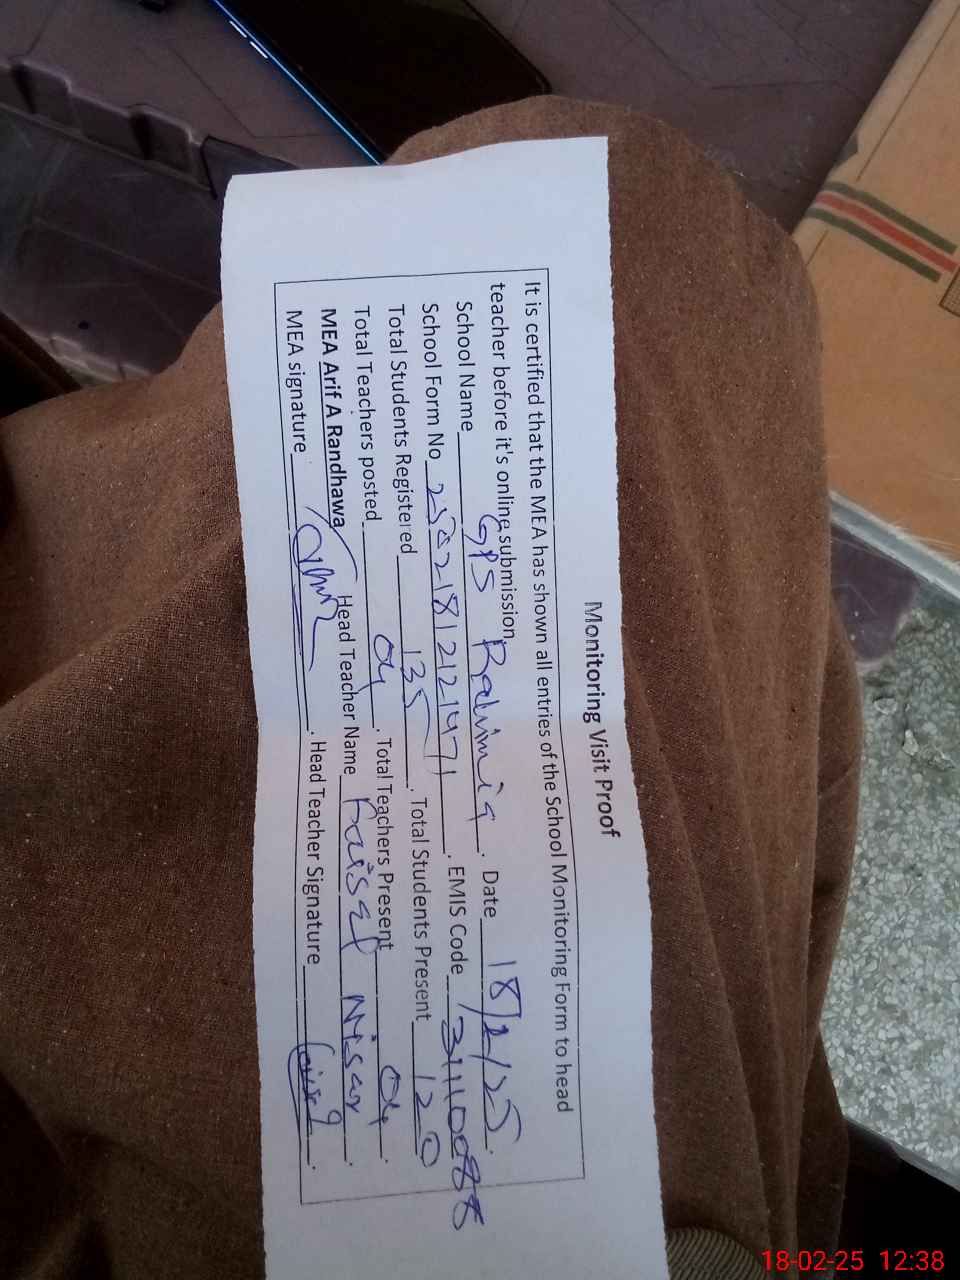 Monitoring Visit Proof
It is certified that the MEA has shown all entries of the School Monitoring Form to head
teacher before it's online submission.
School Name GPS Rahimia. Date 18/2/25.
School Form No 250218121471. EMIS Code 31110088
Total Students Registered 135. Total Students Present 120
Total Teachers posted 04. Total Teachers Present 04.
MEA Arif A Randhawa Head Teacher Name Faisal Nisar.
MEA signature. Head Teacher Signature Faisal.
18-02-25 12:38